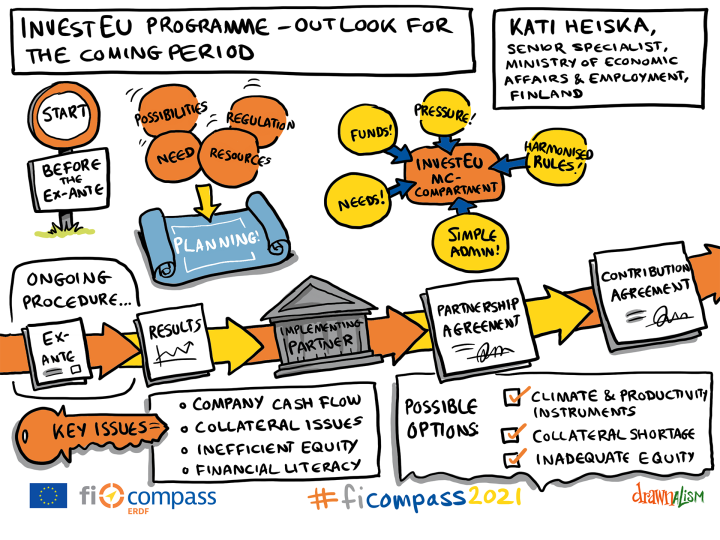 INVESTEU PROGRAMME - OUTLOOK FOR
THE COMING PERIOD
KATI HEISKA,
SENIOR SPECIALIST,
MINISTRY OF ECONOMIC
AFFAIRS & EMPLOYMENT,
FINLAND
START
BEFORE
THE
EX-ANTE
POSSIBILITIES
REGULATION
NEED
RESOURCES
PLANNING!
FUNDS!
PRESSURE!
HARMONISED
RULES!
NEEDS!
SIMPLE
ADMIN!
INVESTEU
MC-
COMPARTMENT
ONGOING
PROCEDURE...
EX-
ANTE
RESULTS
IMPLEMENTING
PARTNER
PARTNERSHIP
AGREEMENT
CONTRIBUTION
AGREEMENT
KEY ISSUES
COMPANY CASH FLOW
COLLATERAL ISSUES
INEFFICIENT EQUITY
FINANCIAL LITERACY
POSSIBLE
OPTIONS:
CLIMATE & PRODUCTIVITY
INSTRUMENTS
COLLATERAL SHORTAGE
INADEQUATE EQUITY
fi compass
ERDF
#ficompass2021
drawnalism